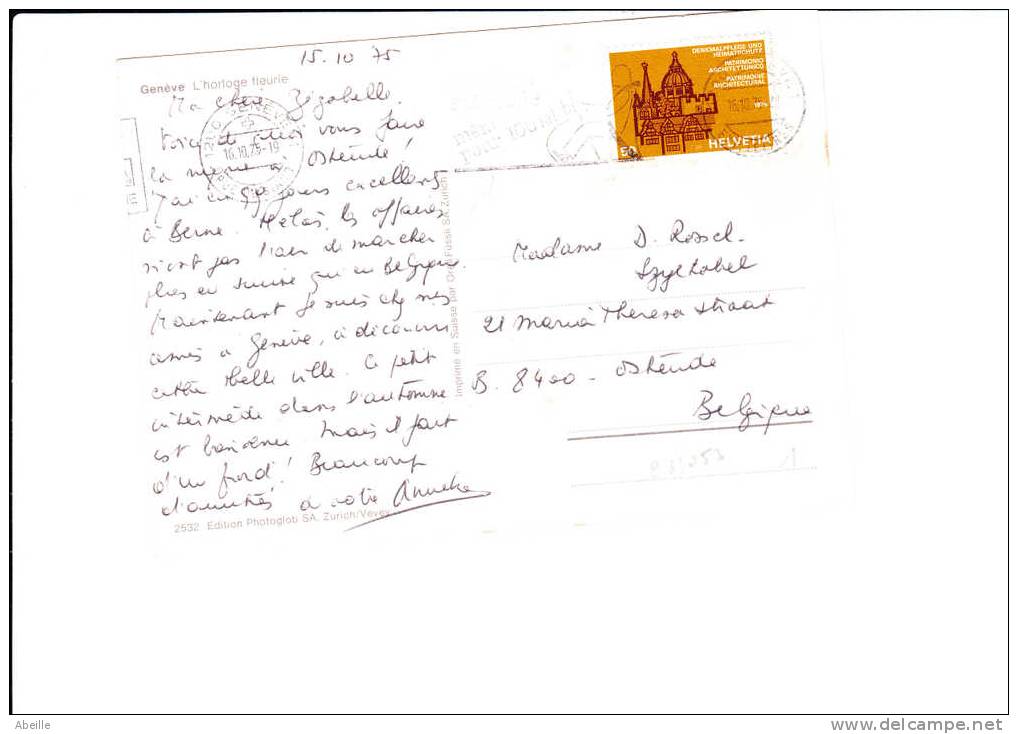 15.10 '75
Genève L'horloge fleurie
Ma chère
vous faire
la même à Ostende!
J'ai jours excellents
à Berne. Hélas, les affaires
n'ont pas l'air de marcher
plus en Suisse qu'en Belgique.
Maintenant je suis chez mes
amis à Genève, à découvrir
cette belle ville. Ce petit
intermède dans l'automne
est bienvenu mais il fait
d'un froid! Beaucoup
d'amitiés à votre Anneke
2532 Edition Photoglob SA, Zürich/Vevey
Imprimé en Suisse par Orell Füssli SA, Zürich
GENEVE
16.10.75-19
DENKMALPFLEGE UND
HEIMATSCHUTZ
PATRIMONIO
ARCHITETTONICO
PATRIMOINE
ARCHITECTURAL
1975
50 HELVETIA
Madame D. Rossel-
Szyekobel
21 Maria Theresa straat
B. 8400 - Ostende
Belgique
Abeille
www.delcampe.net